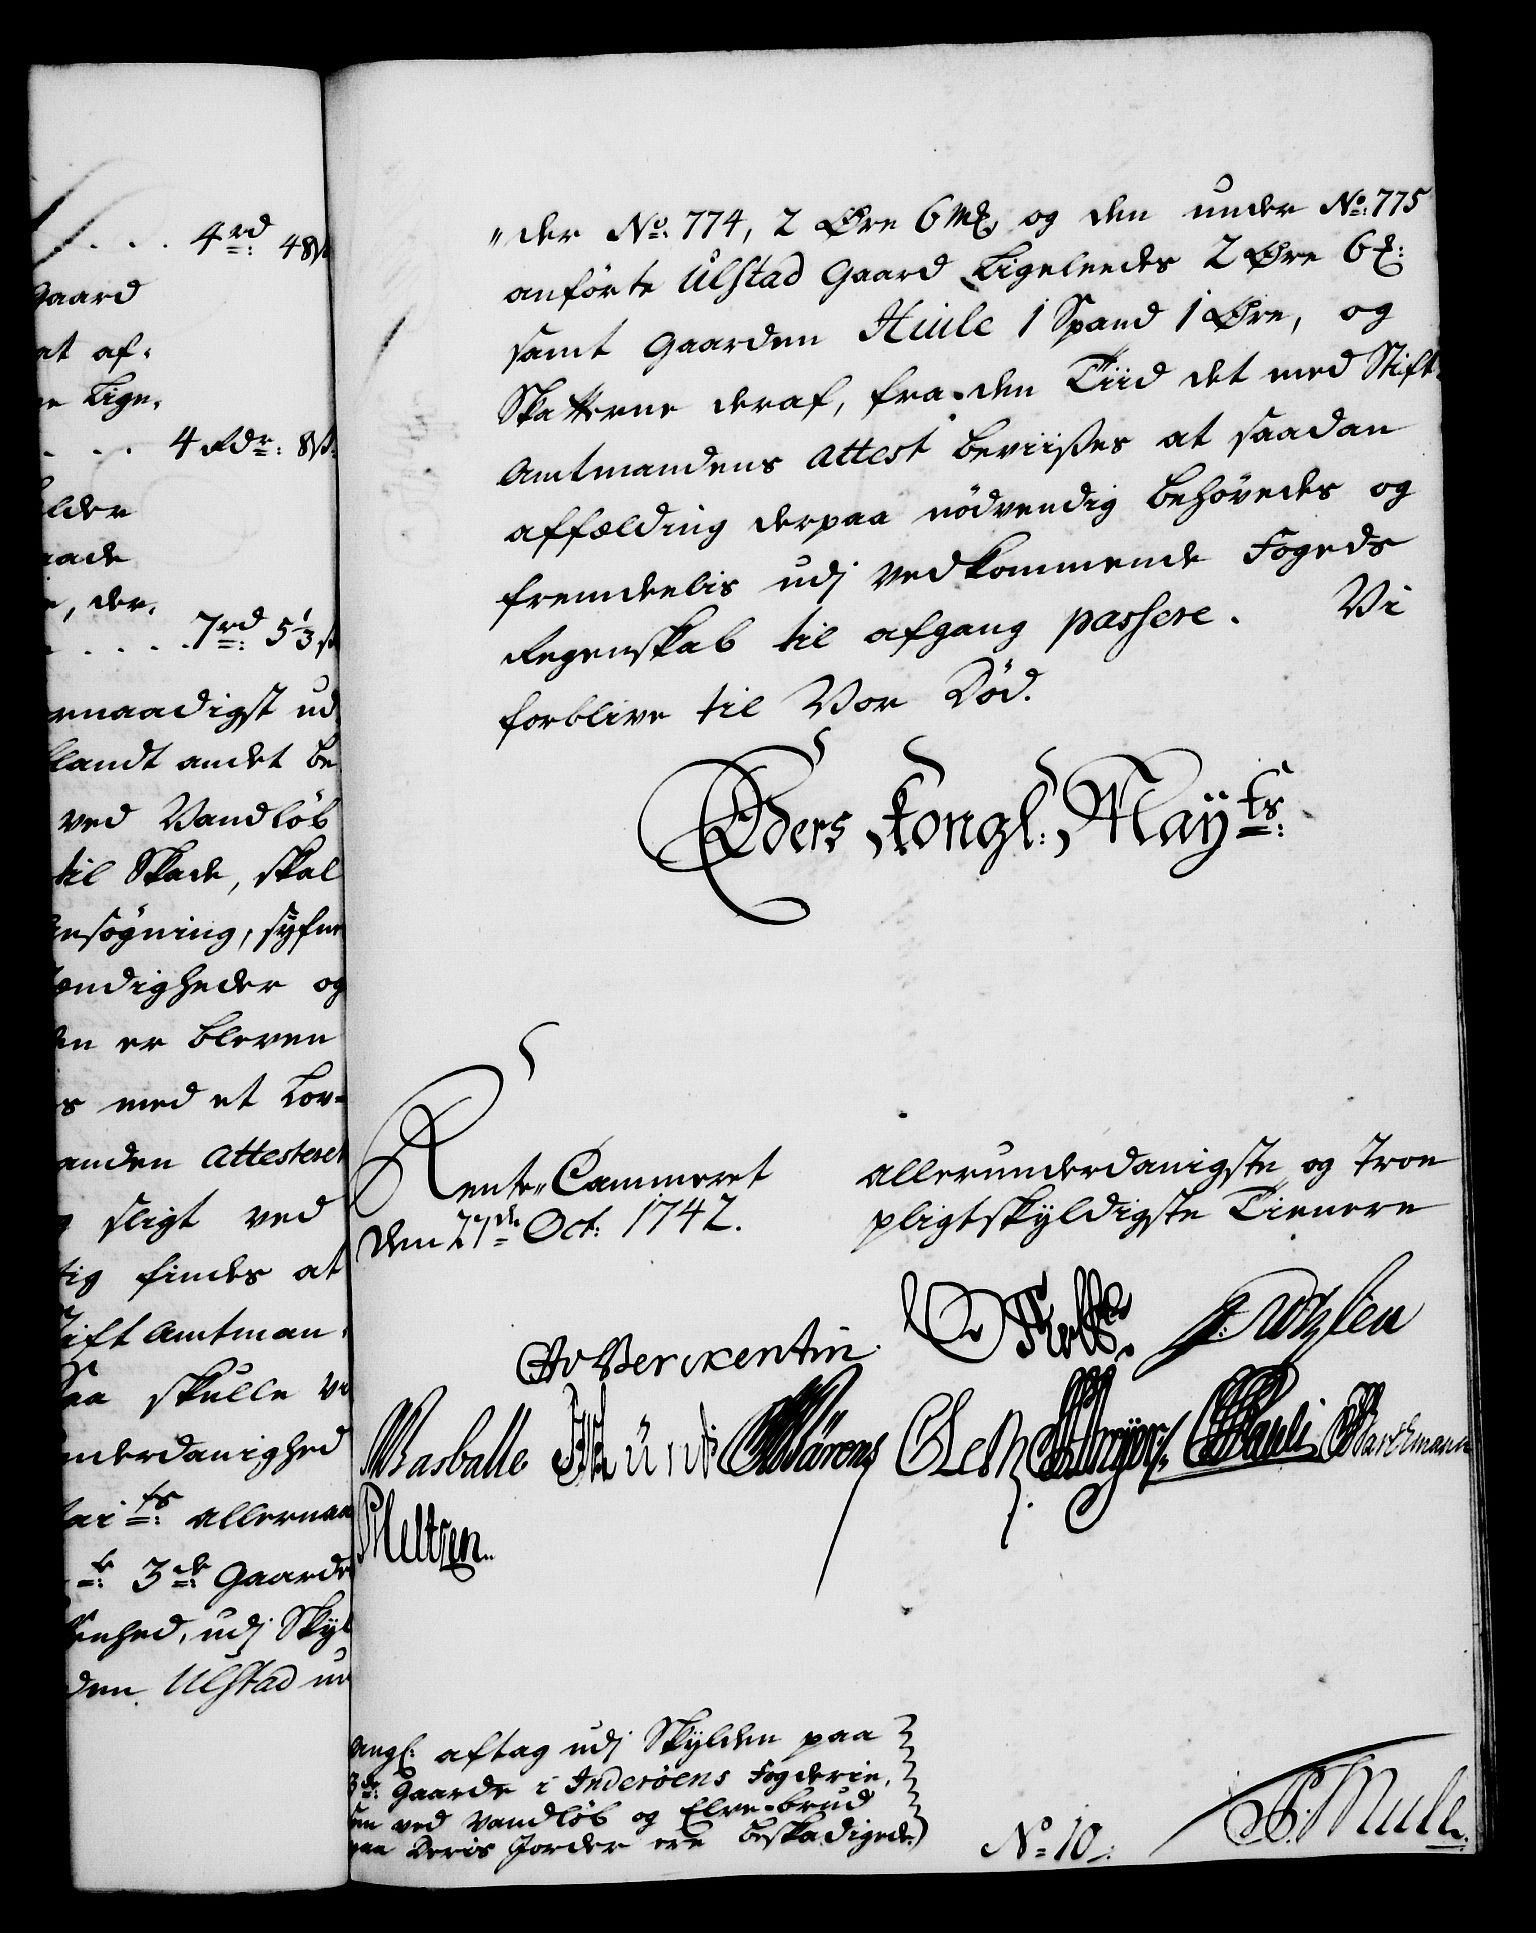 4 rd: 48
Gaard
at af-
Lige-
4 Rdr: 8
der
7 rd: 5 1/3 s
ernaadigst ud
blandt andet be
ved Vandløb
til Skade, skal
Ansøgning, syfne
stændigheder og
er bleven
med et Lov-
manden attesteret
sligt ved
findes at
Stift Amtman-
Saa skulle vi
underdanighed
allernaa
3de Gaarde
udj Skyl
den Ulstad un
"der No: 774, 2 Øre 6 Mk, og den under No: 775
anførte Ulstad Gaard Ligeleedes 2 Øre 6 :
samt Gaarden Huule 1 Spand 1 Øre, og
Skatterne deraf, fra den Tiid det med Stift-
Amtmandens attest beviises at saadan
affælding derpaa nødvendig behøvedes og
fremdeelis udj vedkommende Fogeds
Regenskab til afgang passere. Vi
forblive til Vor Død.
Eders Kongl: Mayts:
Rente-Cammeret
den 27de Oct: 1742.
allerunderdanigste og Troe
pligtskyldigste Tienere
CAvBerckentin.
Wasballe
Pauli
Barthmann
Neltzen
angl: aftag udj Skylden paa
3de Gaarde i Inderøens Fogderie,
som ved Vandløb og Elve-brud
paa Deris Jorder ere beskadigede)
No 10.
P. Mule.